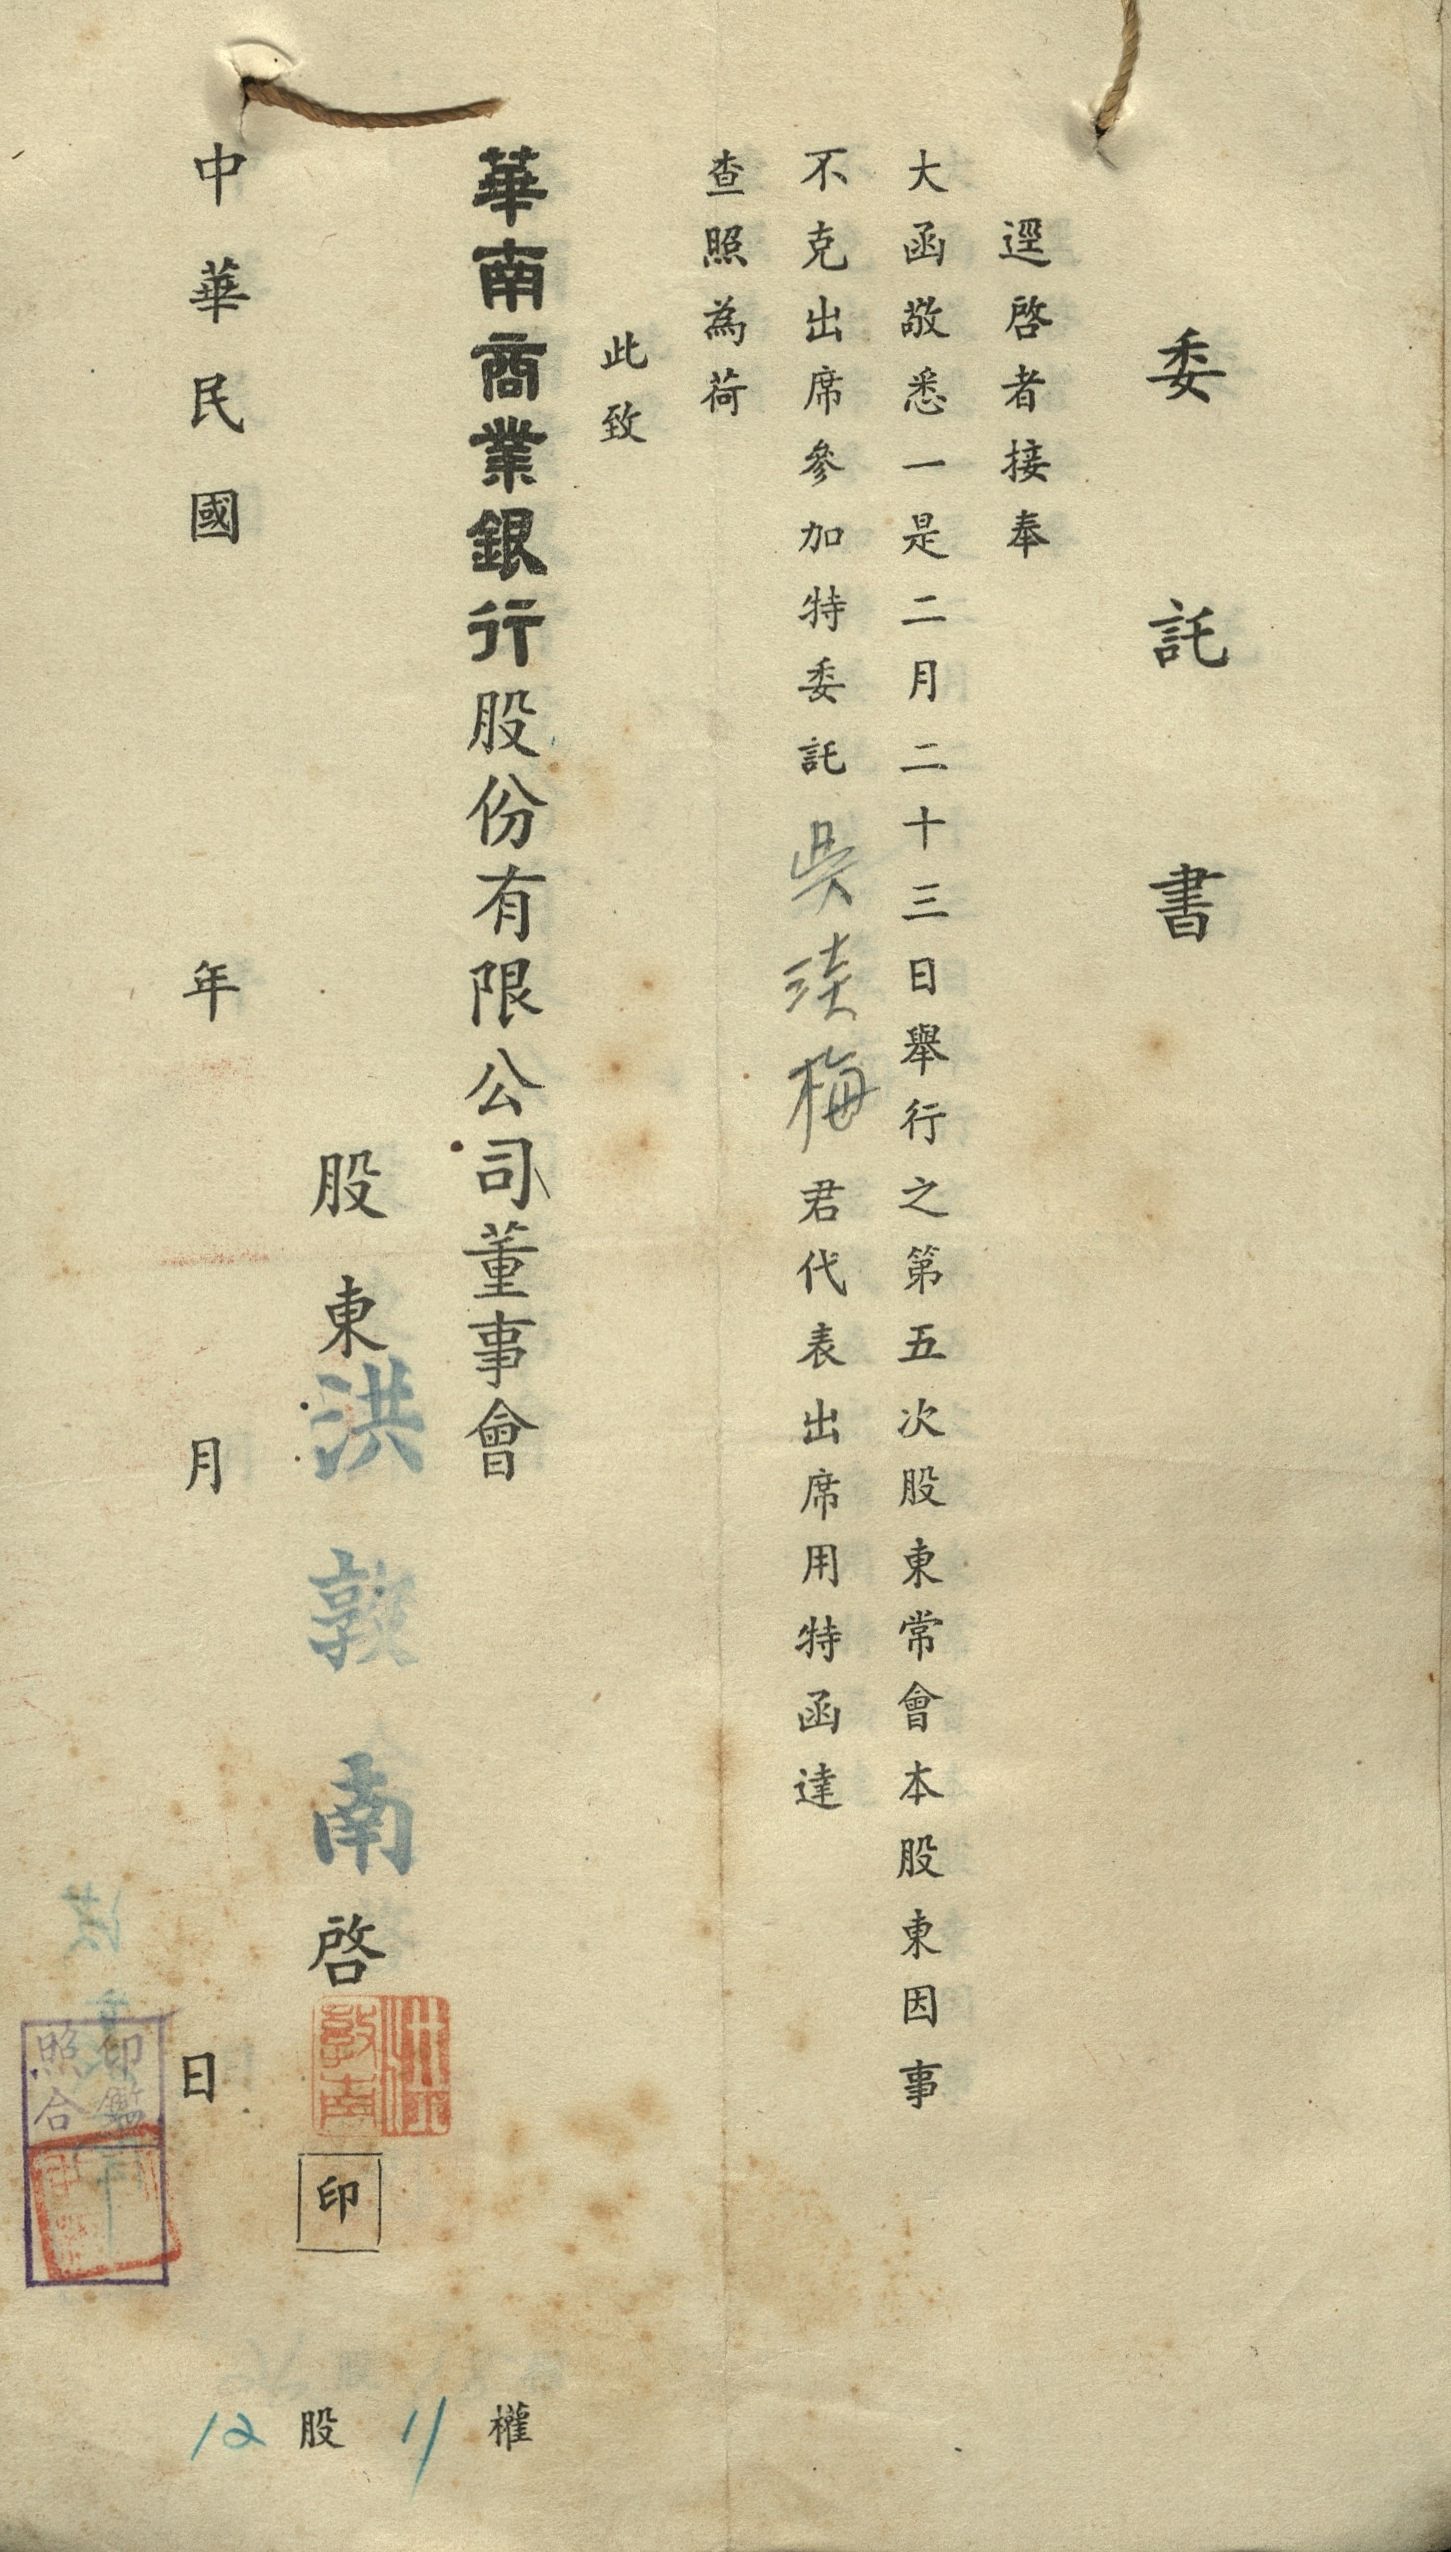 委託書
逕啓者接奉
大函敬悉一是二月二十三日舉行之第五次股東常會本股東因事
不克出席參加特委託吳 梅君代表出席用特函達
查照為荷
此致
華南商業銀行股份有限公司董事會
股東洪敦南啓
洪敦南
印
中華民國 年 月 日
印鑑照合
12股11權